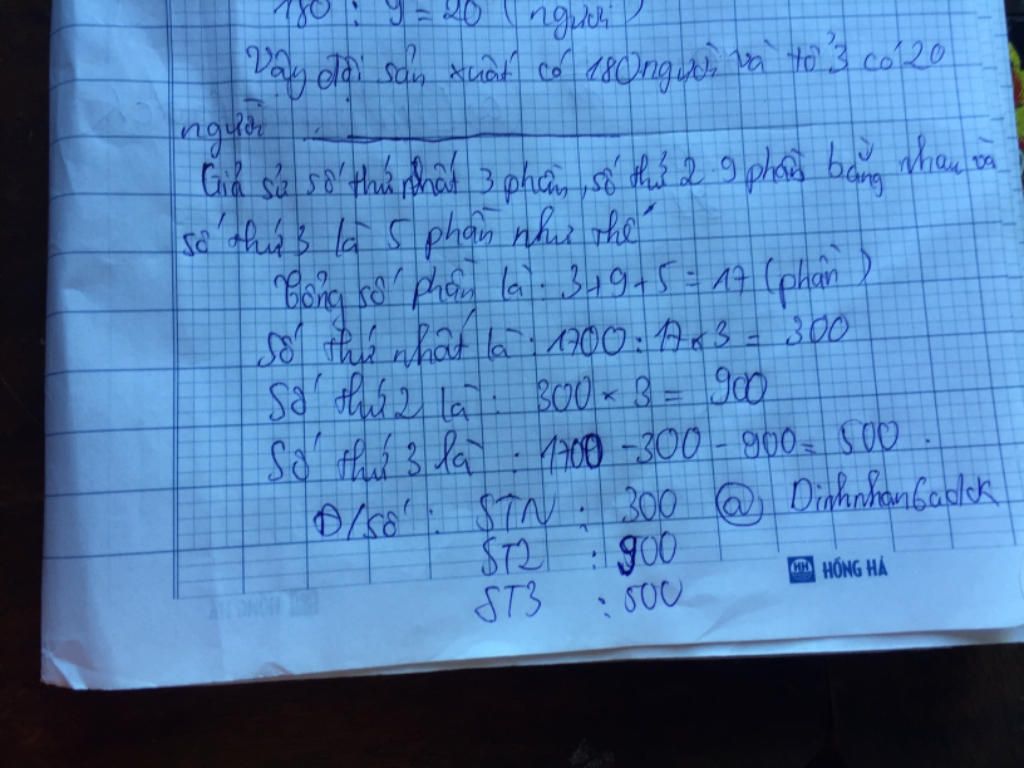 180 : 9 = 20 (người)
Vậy đội sản xuất có 180 người và tổ 3 có 20
người
Giả sử số thứ nhất 3 phần, số thứ 2 9 phần bằng nhau và
số thứ 3 là 5 phần như thế
Tổng số phần là : 3+9+5 = 17 (phần)
Số thứ nhất là : 1700 : 17 x 3 = 300
Số thứ 2 là : 300 x 3 = 900
Số thứ 3 là : 1700 - 300 - 900 = 500 .
Đ/số : STN : 300 @ Dinhnhan6adck
ST2 : 900
HH HỒNG HÀ
ST3 : 500